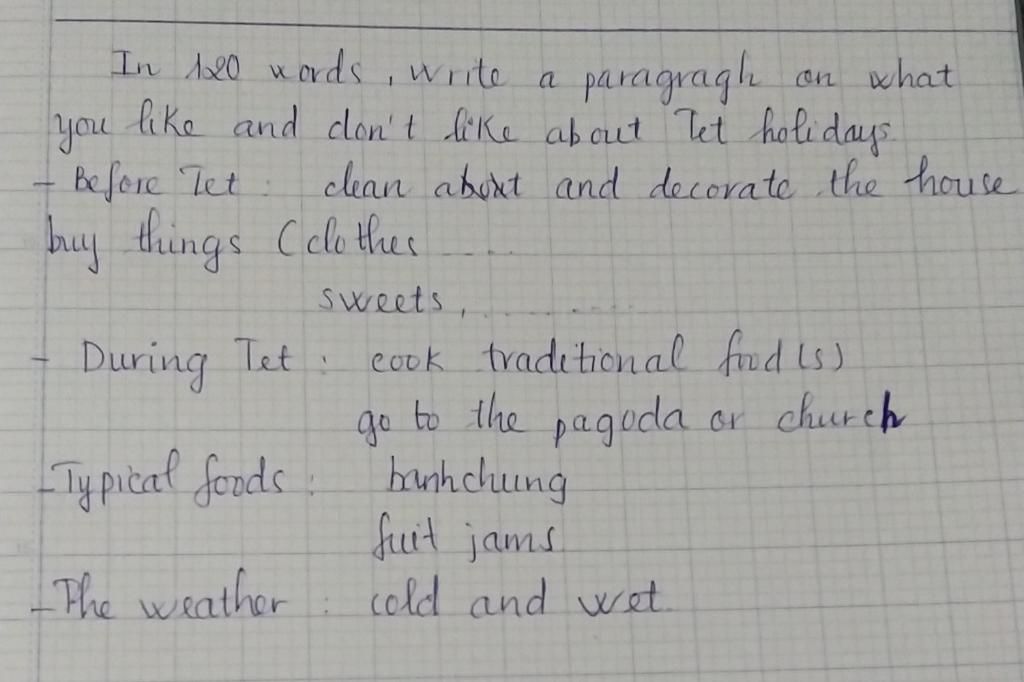 In 120 words, write a paragragh on what
you like and don't like about Tet holidays
- Before Tet : clean about and decorate the house
buy things (clothes ....
sweets, ..........
- During Tet : cook traditional food (s)
go to the pagoda or church
- Typical foods : banhchung
fuit jams
- The weather : cold and wet